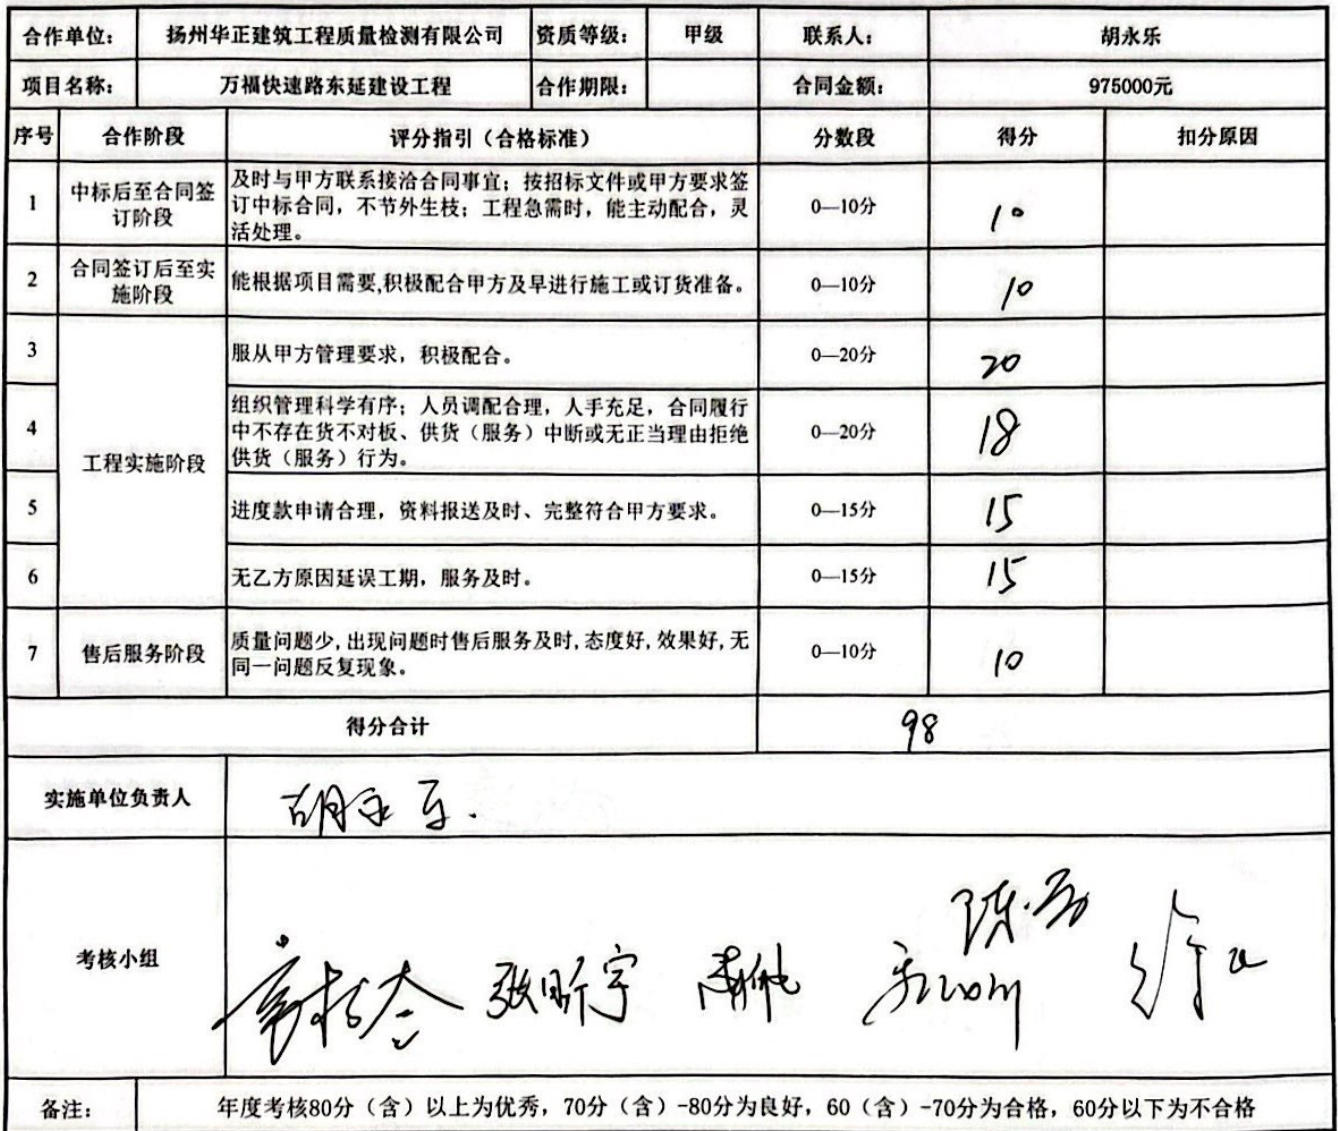 合作单位： 扬州华正建筑工程质量检测有限公司 资质等级： 甲级 联系人： 胡永乐
项目名称： 万福快速路东延建设工程 合作期限： 合同金额： 975000元
序号 合作阶段 评分指引（合格标准） 分数段 得分 扣分原因
1 中标后至合同签
订阶段
及时与甲方联系接洽合同事宜；按招标文件或甲方要求签
订中标合同，不节外生枝；工程急需时，能主动配合，灵
活处理。
0—10分 10
2 合同签订后至实
施阶段
能根据项目需要,积极配合甲方及早进行施工或订货准备。
0—10分 10
工程实施阶段
3 服从甲方管理要求，积极配合。 0—20分 20
4 组织管理科学有序；人员调配合理，人手充足，合同履行
中不存在货不对板、供货（服务）中断或无正当理由拒绝
供货（服务）行为。
0—20分 18
5 进度款申请合理，资料报送及时、完整符合甲方要求。 0—15分 15
6 无乙方原因延误工期，服务及时。 0—15分 15
7 售后服务阶段
质量问题少,出现问题时售后服务及时,态度好,效果好,无
同一问题反复现象。
0—10分 10
得分合计 98
实施单位负责人 胡永乐
考核小组 张昕宇
备注： 年度考核80分（含）以上为优秀，70分（含）-80分为良好，60（含）-70分为合格，60分以下为不合格